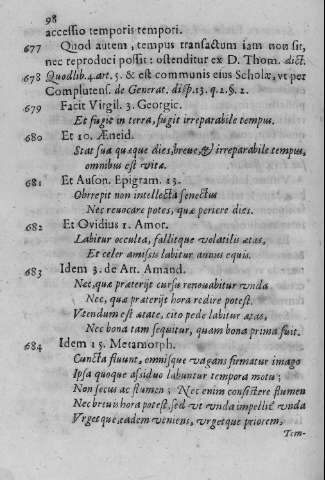 98
accessio temporis tempori.
677 Quod autem, tempus transactum iam non sit,
nec reproduci possit: ostenditur ex D. Thom. dict.
678 Quodlib. 4. art. 5. & est communis eius Scholæ, vt per
Complutens. de Generat. disp. 13. q. 2. §. 2.
679 Facit Virgil. 3. Georgic.
Et fugit in terra, fugit irreparabile tempus.
680 Et 10. Æneid.
Stat sua quæque dies, breue, & irreparabile tempus,
omnibus est vitæ.
681 Et Auson. Epigram. 13.
Obrrepit non intellecta senectus
Nec reuocare potes, quæ periere dies.
682 Et Ouidius 1. Amor.
Labitur occulta, fallitque volatilis ætas,
Et celer amissis labitur annus equis.
683 Idem 3. de Art. Amand.
Nec, quæ præterijt cursu renouabitur vnda
Nec, quæ præterijt hora redire potest.
Vtendum est ætate, cito pede labitur ætas,
Nec bona tam sequitur, quam bona prima fuit.
684 Idem 15. Metamorph.
Cuncta fluunt, omnisque vagans firmatur imago
Ipsa quoque assiduo labuntur tempora motu;
Non secus ac flumen; Nec enim consistere flumen
Nec breuis hora potest, sed vt vnda impellit vnda
Vrgetque, eadem veniens, vrgetque priorem,
Tem-